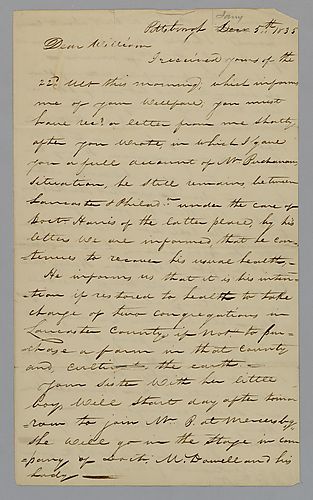 Jany
Pittsburgh Dec 5th 1835
Dear William
I received yours of the
22d ult this morning, which informs
me of your wellfare, you must
have recd a letter from me shortly
after you wrote, in which I gave
you a full account of Mr Buchanan
situation, he still remains between
Lancaster & Philada under the care of
Doct. Harris of the latter place, by his
letter we are informed that he con-
tinues to recover his usual health,
He informs us that it is his inten-
tion if restored to health to take
charge of two congregations in
Lancaster County, if not to pur-
chase a farm in that County
and cultivate the earth
Your Sister with her little
boy, will start day after tomo-
row to join Mr B. at Mercersbg.
She will go in the Stage in com-
pany of Doct. McDowell and his
Lady